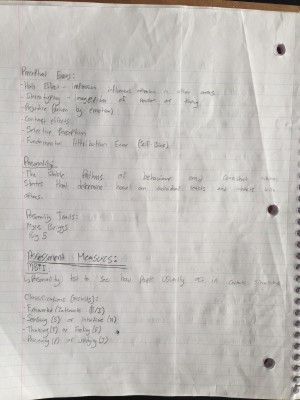 Perceptual Errors:
- Halo Effect - influences behaviour in other areas.
- Stereotyping - of person or thing.
- Projection (driven by emotions)
- Contrast effects
- Selective Perception
- Fundamental Attribution Error (Self-Serv).
Personality:
- The Stable Patterns of behaviour and consistent internal
States that determine how an individual reacts and interacts with
others.
Personality Traits:
Myers Briggs
Big 5
Assessment Measures:
MBTI
↳ Personality test to see how people usually act in certain situations
Classifications (MBTI):
- Extroverted/Introverted (E/I)
- Sensing (S) or Intuitive (N)
- Thinking (T) or Feeling (F)
- Perceiving (P) or Judging (J)